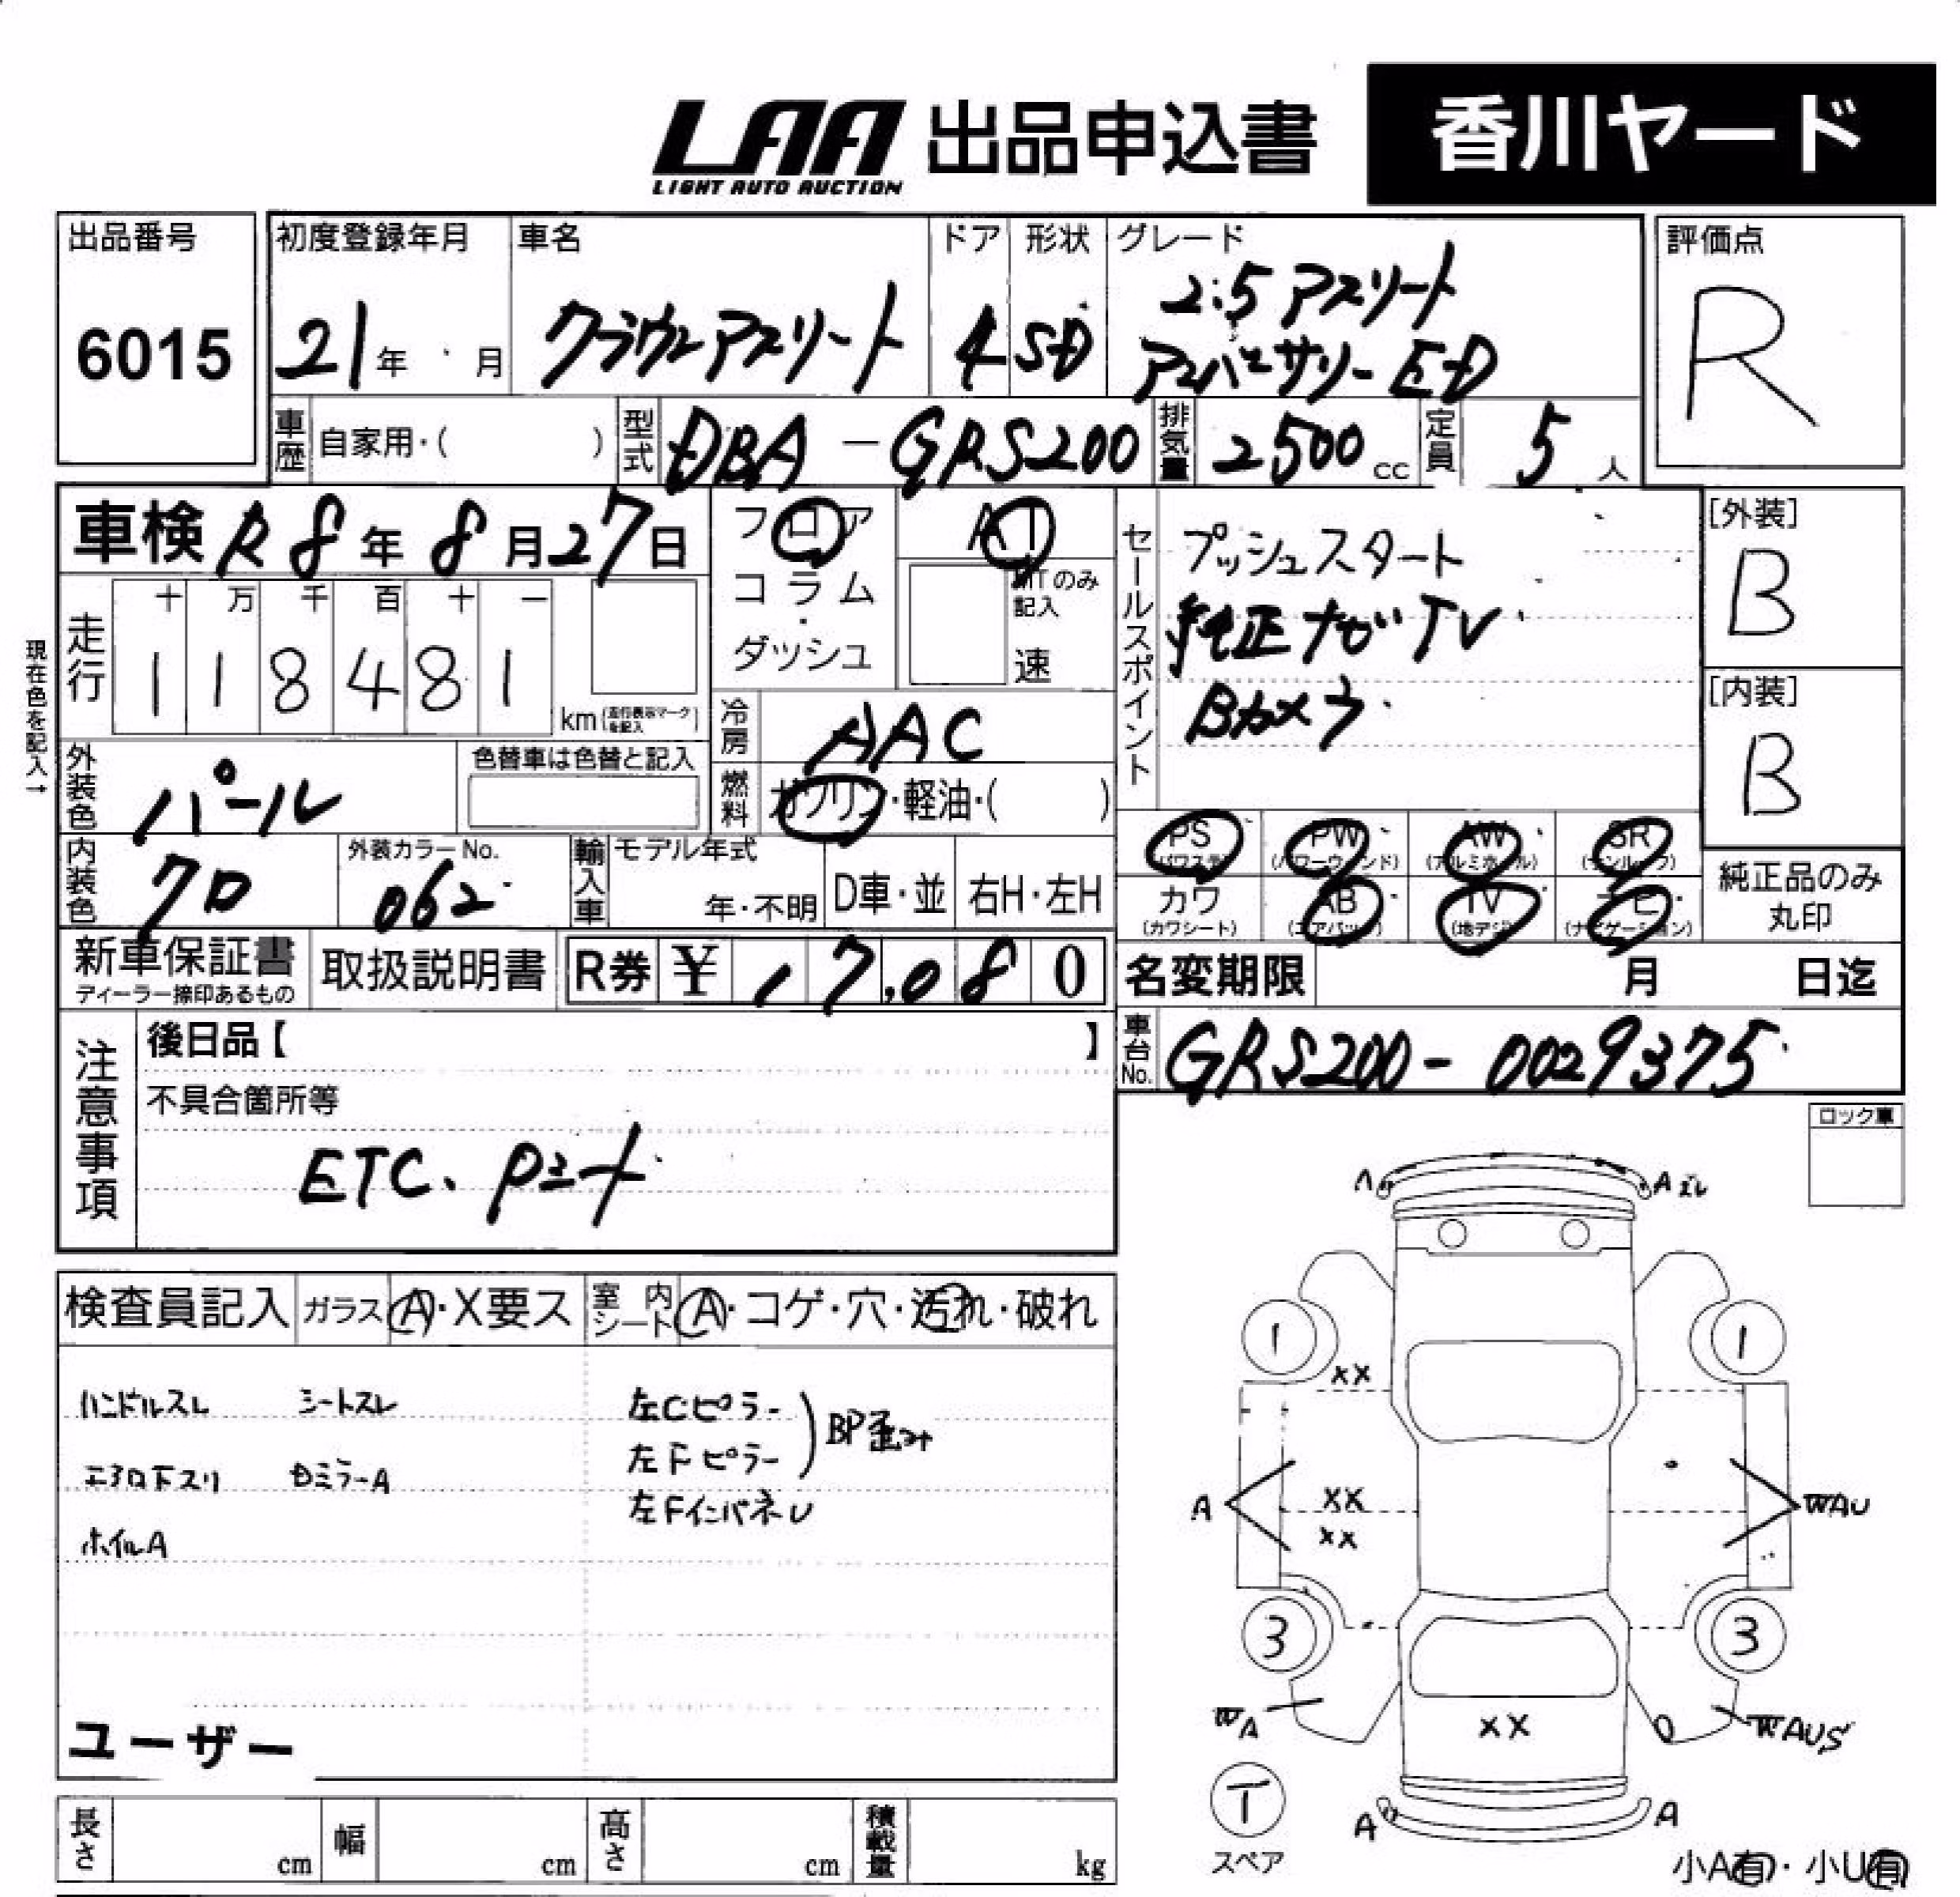 LAA 出品申込書 香川ヤード
LIGHT AUTO AUCTION
出品番号 6015
初度登録年月 21年 月
車名 クラウンアスリート
ドア 4
形状 SD
グレード 2.5 アスリート
アニバーサリーED
評価点 R
車歴 自家用・( )
型式 DBA-GRS200
排気量 2500 cc
定員 5 人
車検 R8年8月27日
フロア
コラム
・
ダッシュ
AT
MTのみ
記入
速
セールスポイント
プッシュスタート
純正ナビTV
Bカメラ
[外装]
B
[内装]
B
現在色を記入→
走行
十 万 千 百 十 一
1 1 8 4 8 1
km (走行表示マークを記入)
冷房 AAC
燃料 ガソリン・軽油・( )
外装色 パール
色替車は色替と記入
内装色 クロ
外装カラーNo. 062
輸入車 モデル年式
年・不明
D車・並
右H・左H
PS (パワステ)
PW (パワーウィンド)
AW (アルミホイール)
SR (サンルーフ)
カワ (カワシート)
AB (エアバッグ)
TV (地デジ)
ナビ (ナビゲーション)
純正品のみ
丸印
新車保証書
ディーラー捺印あるもの
取扱説明書
R券 ¥ 17,080
名変期限 月 日迄
車台No. GRS200-0029375
注意事項
後日品【 】
不具合箇所等
ETC、Pシート
ロック車
検査員記入 ガラス A・X要ス 室内シート A・コゲ・穴・汚れ・破れ
ハンドルスレ シートスレ
エアロ下スリ Dミラー A
ホイルA
左Cピラー
左Fピラー
BP歪み
左FインパネU
ユーザー
A A ズレ
1 1
XX
A XX WAU
XX
3 3
WA XX WAUS
T
スペア
A A
小A有・小U有
長さ cm
幅 cm
高さ cm
積載量 kg